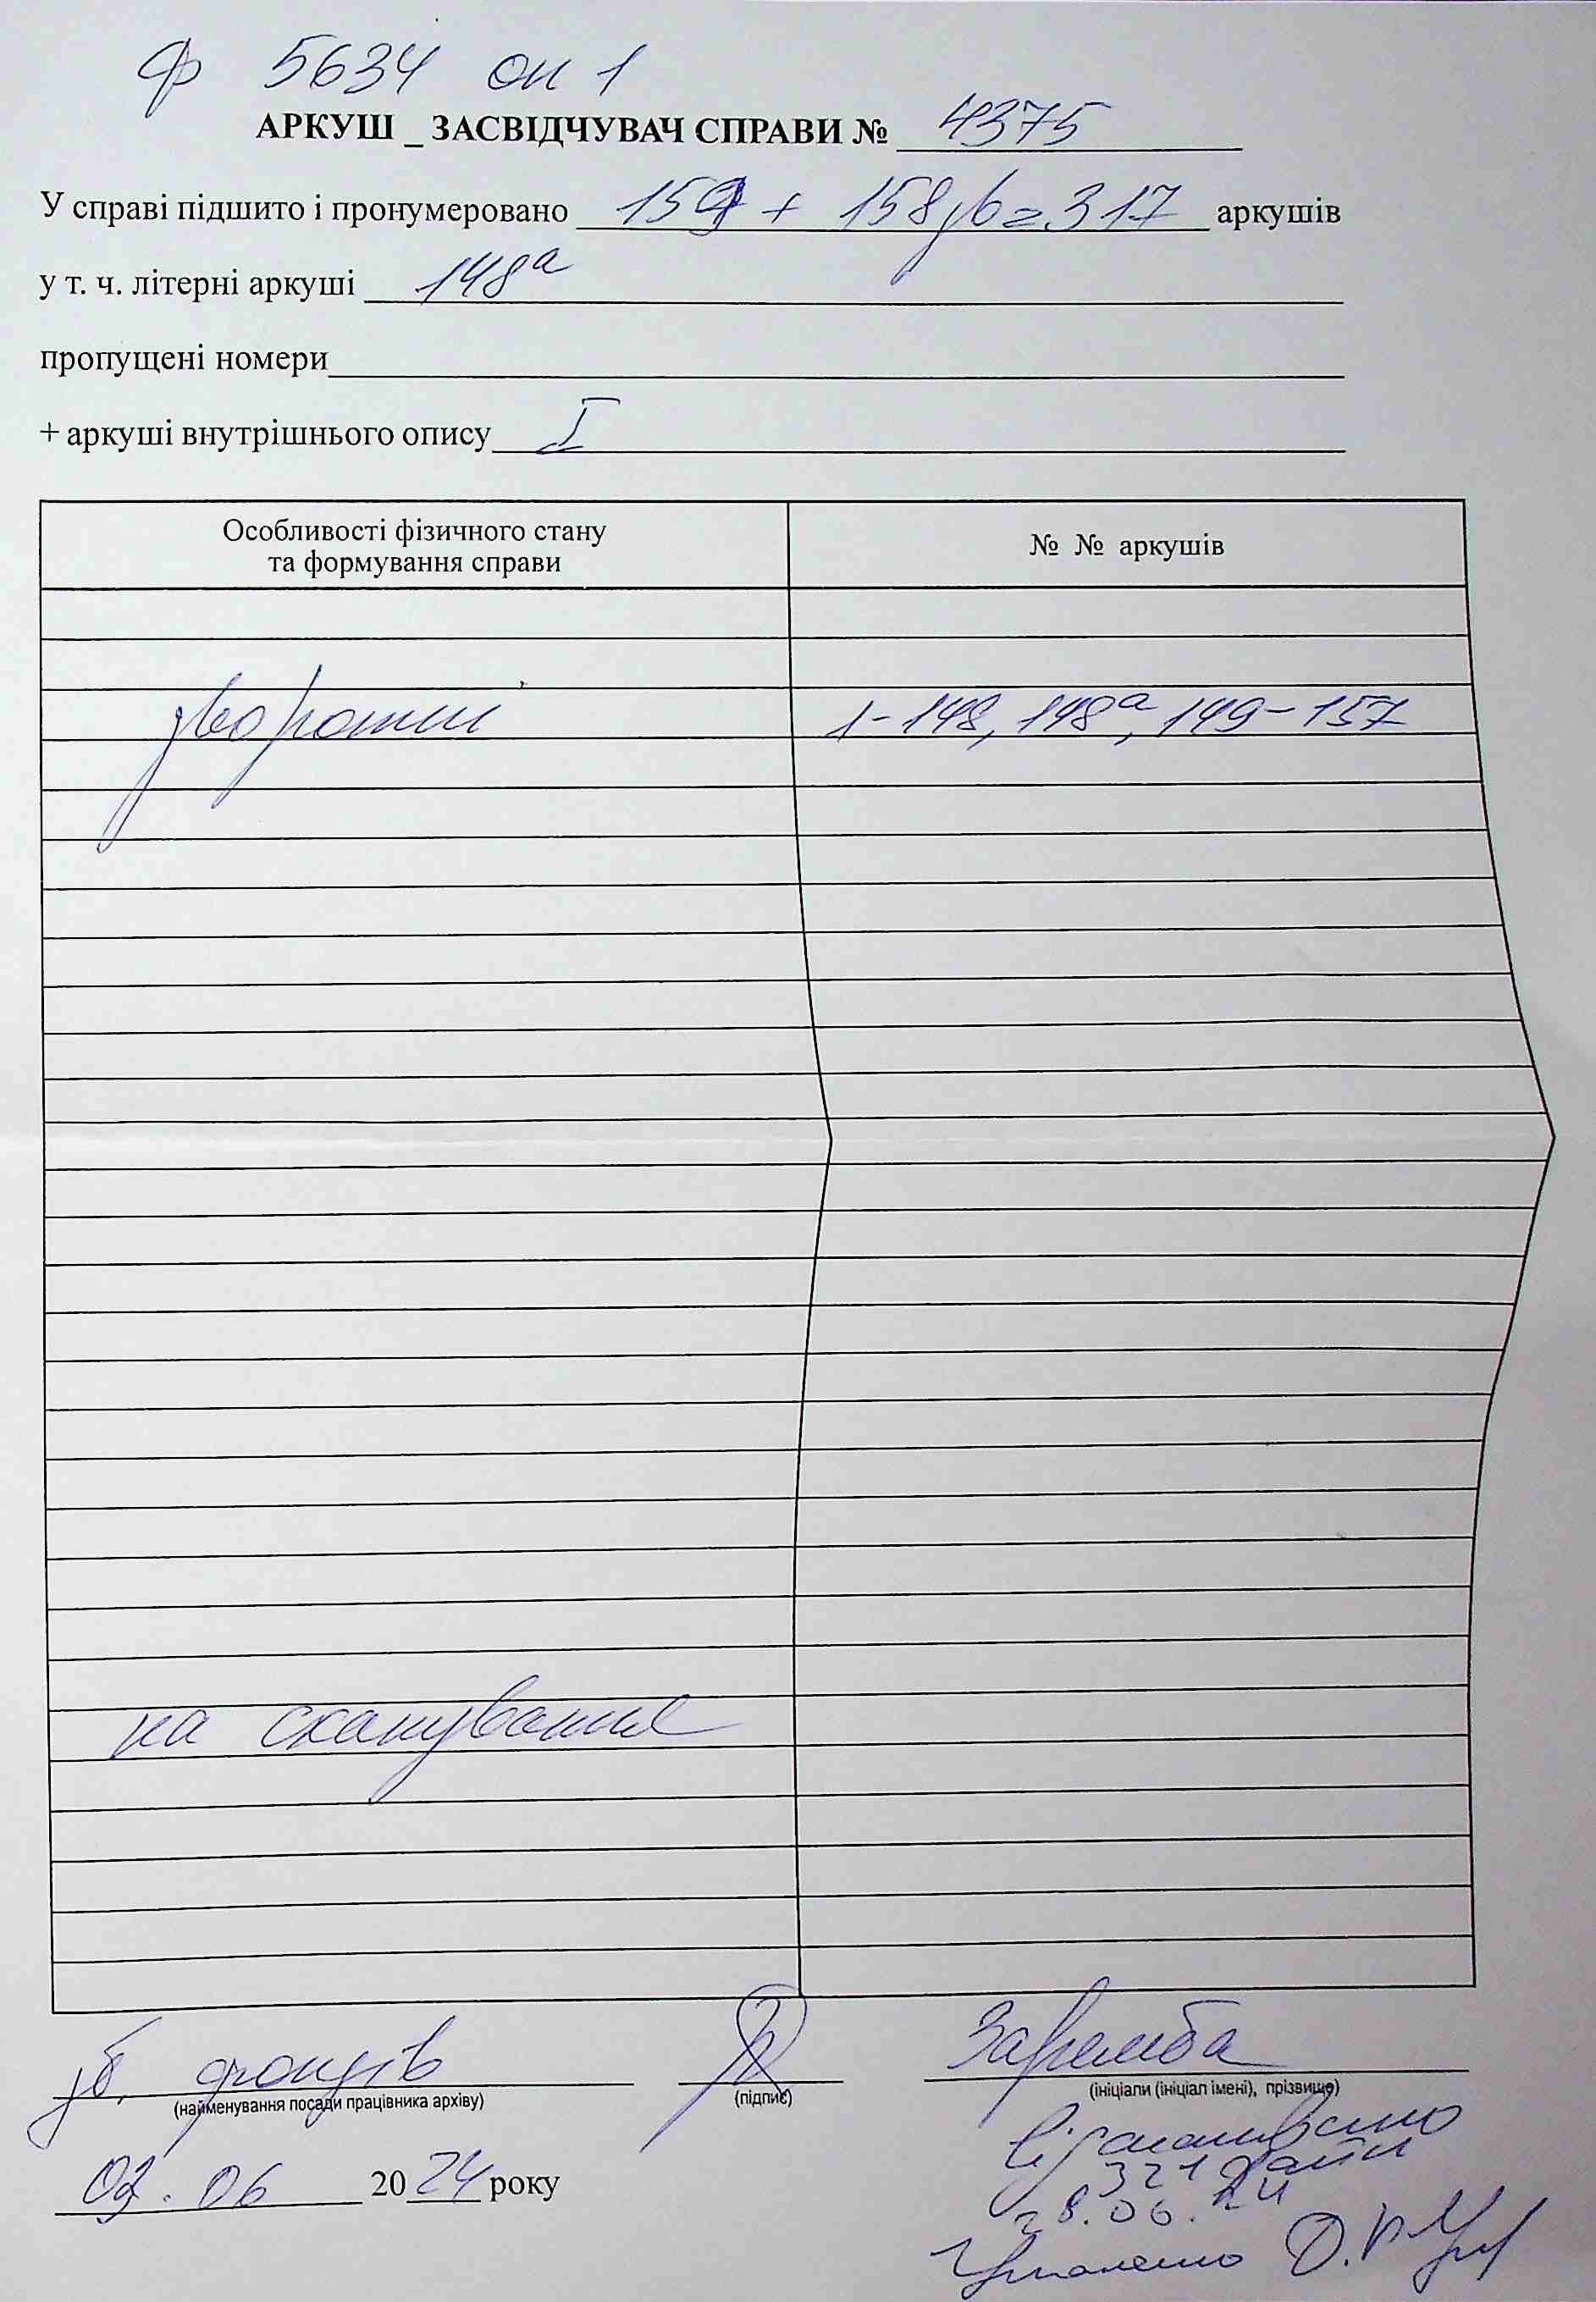 ф 5634 оп 1
АРКУШ _ ЗАСВІДЧУВАЧ СПРАВИ № 4375
У справі підшито і пронумеровано 159 + 158зв=317 аркушів
у т. ч. літерні аркуші 148а
пропущені номери
+ аркуші внутрішнього опису I
Особливості фізичного стану
та формування справи
№ № аркушів
звороти 1-148, 148а, 149-157
на сканування
зб. фондів Заремба
(найменування посади працівника архіву) (підпис) (ініціали (ініціал імені), прізвище)
Відскановано
321 файл
03.06 2024 року
28.06.24